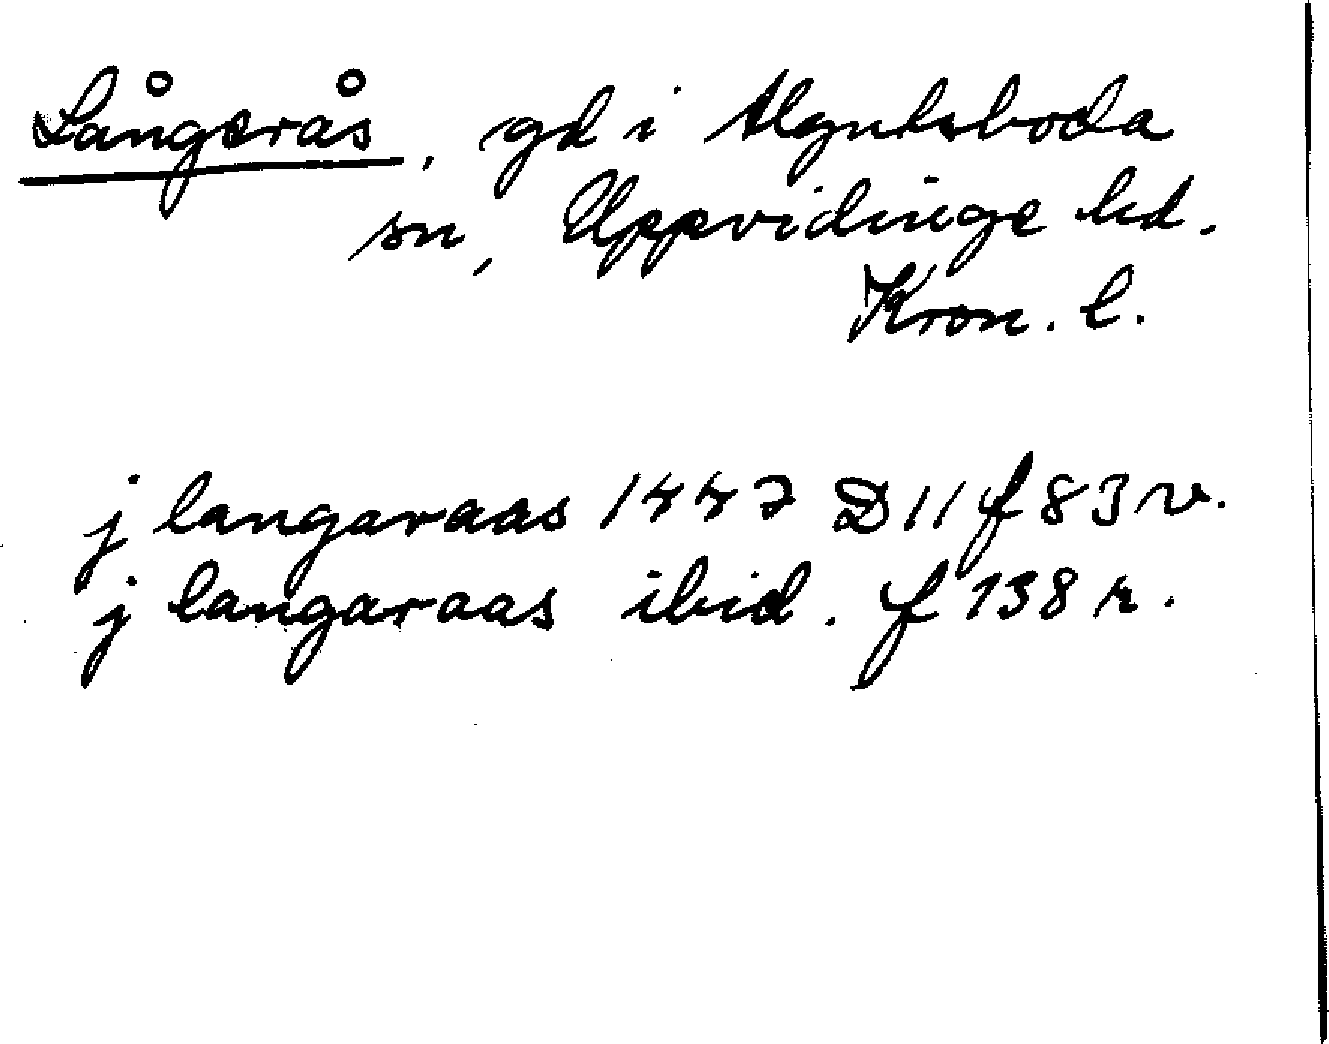 Långerås, gd i Algutsboda
sn, Uppvidinge hd.
Kron. l.
j langaraas 1447 D 11 f 83 v.
j langaraas ibid. f 138 r.